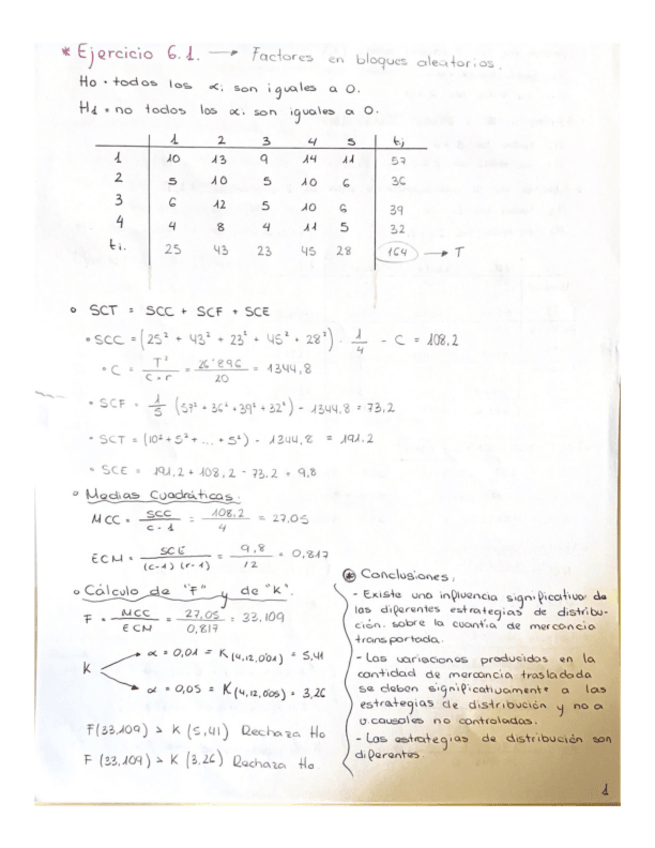 * Ejercicio 6.1. → Factores en bloques aleatorios.
Ho • todos los αi son iguales a 0.
H1 • no todos los αi son iguales a 0.
1 2 3 4 5 tj
1 10 13 9 14 11 57
2 5 10 5 10 6 36
3 6 12 5 10 6 39
4 4 8 4 11 5 32
ti. 25 43 23 45 28 164 → T
• SCT = SCC + SCF + SCE
• SCC = (25² + 43² + 23² + 45² + 28²) · 1/4 - C = 108,2
• C = T²/c·r = 26'896/20 = 1344,8
• SCF = 1/5 (57² + 36² + 39² + 32²) - 1344,8 = 73,2
• SCT = (10² + 5² + ... + 5²) - 1344,8 = 191.2
• SCE = 191,2 + 108,2 - 73,2 = 9,8
• Medias Cuadráticas:
MCC = SCC/c-1 = 108,2/4 = 27,05
ECM = SCE/(c-1)(r-1) = 9,8/12 = 0,817
• Cálculo de "F" y de "K".
F = MCC/ECM = 27,05/0,817 = 33,109
K → α = 0,01 = K(4,12,0'01) = 5,41
→ α = 0,05 = K(4,12,0'05) = 3,26
F(33,109) > K (5,41) Rechaza Ho
F (33,109) > K (3,26) Rechaza Ho
* Conclusiones:
- Existe una influencia significativa de
las diferentes estrategias de distribu-
ción. sobre la cuantía de mercancía
transportada.
- Las variaciones producidas en la
cantidad de mercancía trasladada
se deben significativamente a las
estrategias de distribución y no a
causales no controladas.
- Las estrategias de distribución son
diferentes.
1